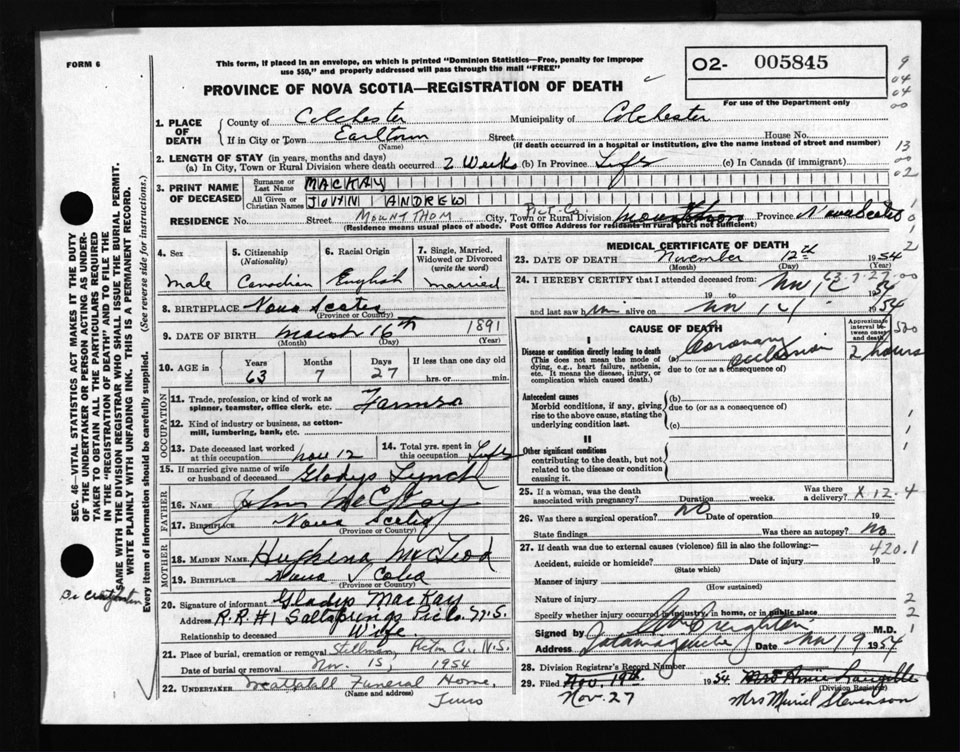 FORM 6
This form, if placed in an envelope, on which is printed "Dominion Statistics—Free, penalty for improper
use $50," and properly addressed will pass through the mail "FREE"
O2- 005845
For use of the Department only
PROVINCE OF NOVA SCOTIA—REGISTRATION OF DEATH
9
04
04
00
13
00
02
1. PLACE OF DEATH
County of Colchester Municipality of Colchester
If in City or Town Earltown Street House No.
(Name) (If death occurred in a hospital or institution, give the name instead of street and number)
2. LENGTH OF STAY (in years, months and days)
(a) In City, Town or Rural Division where death occurred 2 Weeks (b) In Province Life (c) In Canada (if immigrant)
3. PRINT NAME OF DECEASED
Surname or Last Name MACKAY
All Given or Christian Names JOHN ANDREW
Pict. Co.
RESIDENCE No. Street MOUNT THOM City, Town or Rural Division Mount Thom Province Nova Scotia
(Residence means usual place of abode. Post Office Address for residents in rural parts not sufficient)
4. Sex
Male
5. Citizenship (Nationality)
Canadian
6. Racial Origin
English
7. Single, Married, Widowed or Divorced (write the word)
married
8. BIRTHPLACE Nova Scotia
(Province or Country)
9. DATE OF BIRTH March 16th 1891
(Month) (Day) (Year)
10. AGE
Years Months Days If less than one day old
63 7 27 hrs. or min.
OCCUPATION
11. Trade, profession, or kind of work as
spinner, teamster, office clerk, etc. Farmer
12. Kind of industry or business, as cotton-
mill, lumbering, bank, etc.
13. Date deceased last worked
at this occupation Nov 12
14. Total yrs. spent in
this occupation Life
15. If married give name of wife
or husband of deceased Gladys Lynch
FATHER
16. NAME John McKay
17. BIRTHPLACE Nova Scotia
(Province or Country)
MOTHER
18. MAIDEN NAME Hughena McLeod
19. BIRTHPLACE Nova Cotia
(Province or Country)
20. Signature of informant Gladys MacKay
Address R.R#1 Saltsprings Pict Co. N.S.
Relationship to deceased Wife.
21. Place of burial, cremation or removal Stillman, Pictou Co., N.S.
Date of burial or removal Nov. 15, 1954
22. UNDERTAKER Mattatall Funeral Home,
(Name and address) Truro
MEDICAL CERTIFICATE OF DEATH
23. DATE OF DEATH November 12th 1954
(Month) (Day) (Year)
63-7-27
24. I HEREBY CERTIFY that I attended deceased from Nov 12 1954
19 to 19
and last saw him alive on Nov 12 1954
CAUSE OF DEATH
Approximate interval between onset and death
I
Disease or condition directly leading to death
(This does not mean the mode of
dying, e.g., heart failure, asthenia,
etc. It means the disease, injury, or
complication which caused death.
(a) Coronary occlusion
due to (or as a consequence of) 2 hours
Antecedent causes
Morbid conditions, if any, giving
rise to the above cause, stating the
underlying condition last.
(b)
due to (or as a consequence of)
(c)
II
Other significant conditions
contributing to the death, but not
related to the disease or condition
causing it.
25. If a woman, was the death
associated with pregnancy? Duration weeks. Was there a delivery?
X 12-4
26. Was there a surgical operation? no Date of operation 19
State findings Was there an autopsy? no
27. If death was due to external causes (violence) fill in also the following:—
420.1
Accident, suicide or homicide? Date of injury 19
(State which)
Manner of injury
(How sustained)
Nature of injury
Specify whether injury occurred in industry, in home, or in public place
Signed by Creighton M.D.
Address Tatamagouche Date Nov 19 1954
28. Division Registrar's Record Number
29. Filed Nov. 19th 1954 Mrs Annie Langille
(Division Registrar)
Nov. 27 Mrs Muriel Stevenson
SEC. 46—VITAL STATISTICS ACT MAKES IT THE DUTY
OF THE UNDERTAKER OR PERSON ACTING AS UNDER-
TAKER TO OBTAIN ALL THE PARTICULARS REQUIRED
IN THE "REGISTRATION OF DEATH" AND TO FILE THE
SAME WITH THE DIVISION REGISTRAR WHO SHALL ISSUE THE BURIAL PERMIT.
WRITE PLAINLY WITH UNFADING INK. THIS IS A PERMANENT RECORD.
Every item of information should be carefully supplied. (See reverse side for instructions.)